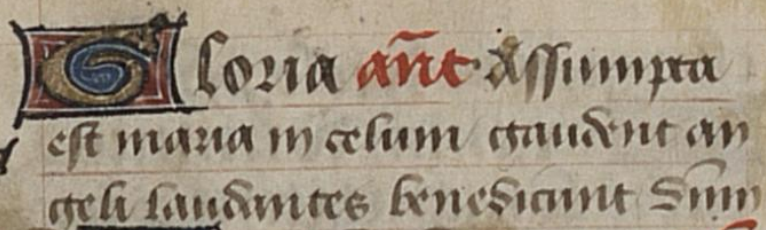 Gloria an̄t Assumpta
est maria in celum gaudent an
geli laudantes benedicunt dn̄m